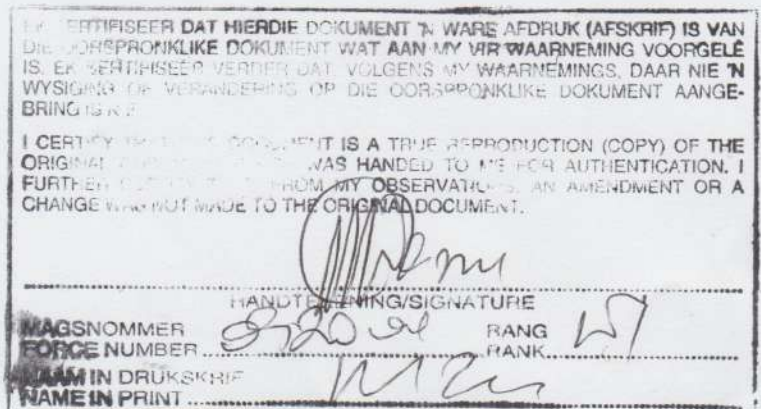 EK SERTIFISEER DAT HIERDIE DOKUMENT 'N WARE AFDRUK (AFSKRIF) IS VAN
DIE OORSPRONKLIKE DOKUMENT WAT AAN MY VIR WAARNEMING VOORGELÊ
IS. EK SERTIFISEER VERDER DAT VOLGENS MY WAARNEMINGS, DAAR NIE 'N
WYSIGING OF VERANDERING OP DIE OORSPRONKLIKE DOKUMENT AANGE-
BRING IS NIE
I CERTIFY THAT THIS DOCUMENT IS A TRUE REPRODUCTION (COPY) OF THE
ORIGINAL WAS HANDED TO ME FOR AUTHENTICATION. I
FURTHER CERTIFY FROM MY OBSERVATIONS, AN AMENDMENT OR A
CHANGE WAS NOT MADE TO THE ORIGINAL DOCUMENT.
HANDTEKENING/SIGNATURE
MAGSNOMMER RANG
FORCE NUMBER RANK
NAAM IN DRUKSKRIF
NAME IN PRINT